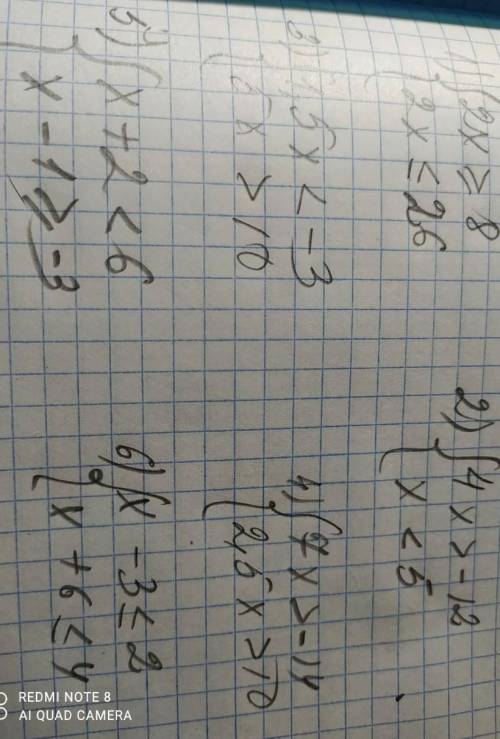 1) { 2x ≥ 8
2x ≤ 26
2) { 4x > -12
x < 5
3) { 1,5x < -3
5x > 10
4) { 7x > -14
2,5x > 10
5) { x + 2 < 6
x - 1 ≥ -3
6) { x - 3 ≤ 2
x + 6 ≤ 4
REDMI NOTE 8
AI QUAD CAMERA